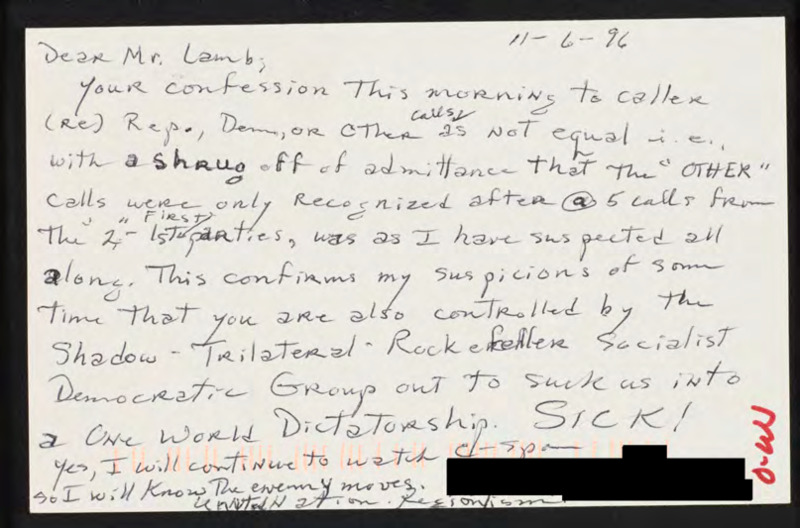 11-6-96
Dear Mr. Lamb;
Your confession This morning to caller
(re) Rep., Dem., or other calls as not equal i.e.,
with a shrug off of admittance that the "OTHER"
calls were only Recognized after @ 5 calls from
the "2" - 1st FIRST parties, was as I have suspected all
along. This confirms my suspicions of some
time that you are also controlled by the
Shadow - Trilateral - Rockefeller Socialist
Democratic Group out to suck us into
a One World Dictatorship. SICK!
yes, I will continue to watch C-Span
so I will Know The enemy moves.
Regionism